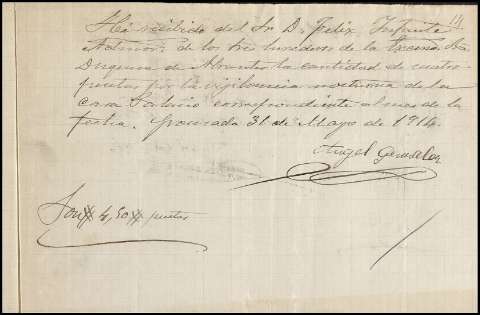 14
He recibido del Sr. D. Felix Infante
Admor. de los tres herederos de la Excma. Sra.
Duquesa de Abrantes la cantidad de cuatro
pesetas por la vigilancia nocturna de la
casa Palacio correspondiente al mes de la
fecha. Granada 31 de Mayo de 1914.
Angel
Son 4,50 pesetas